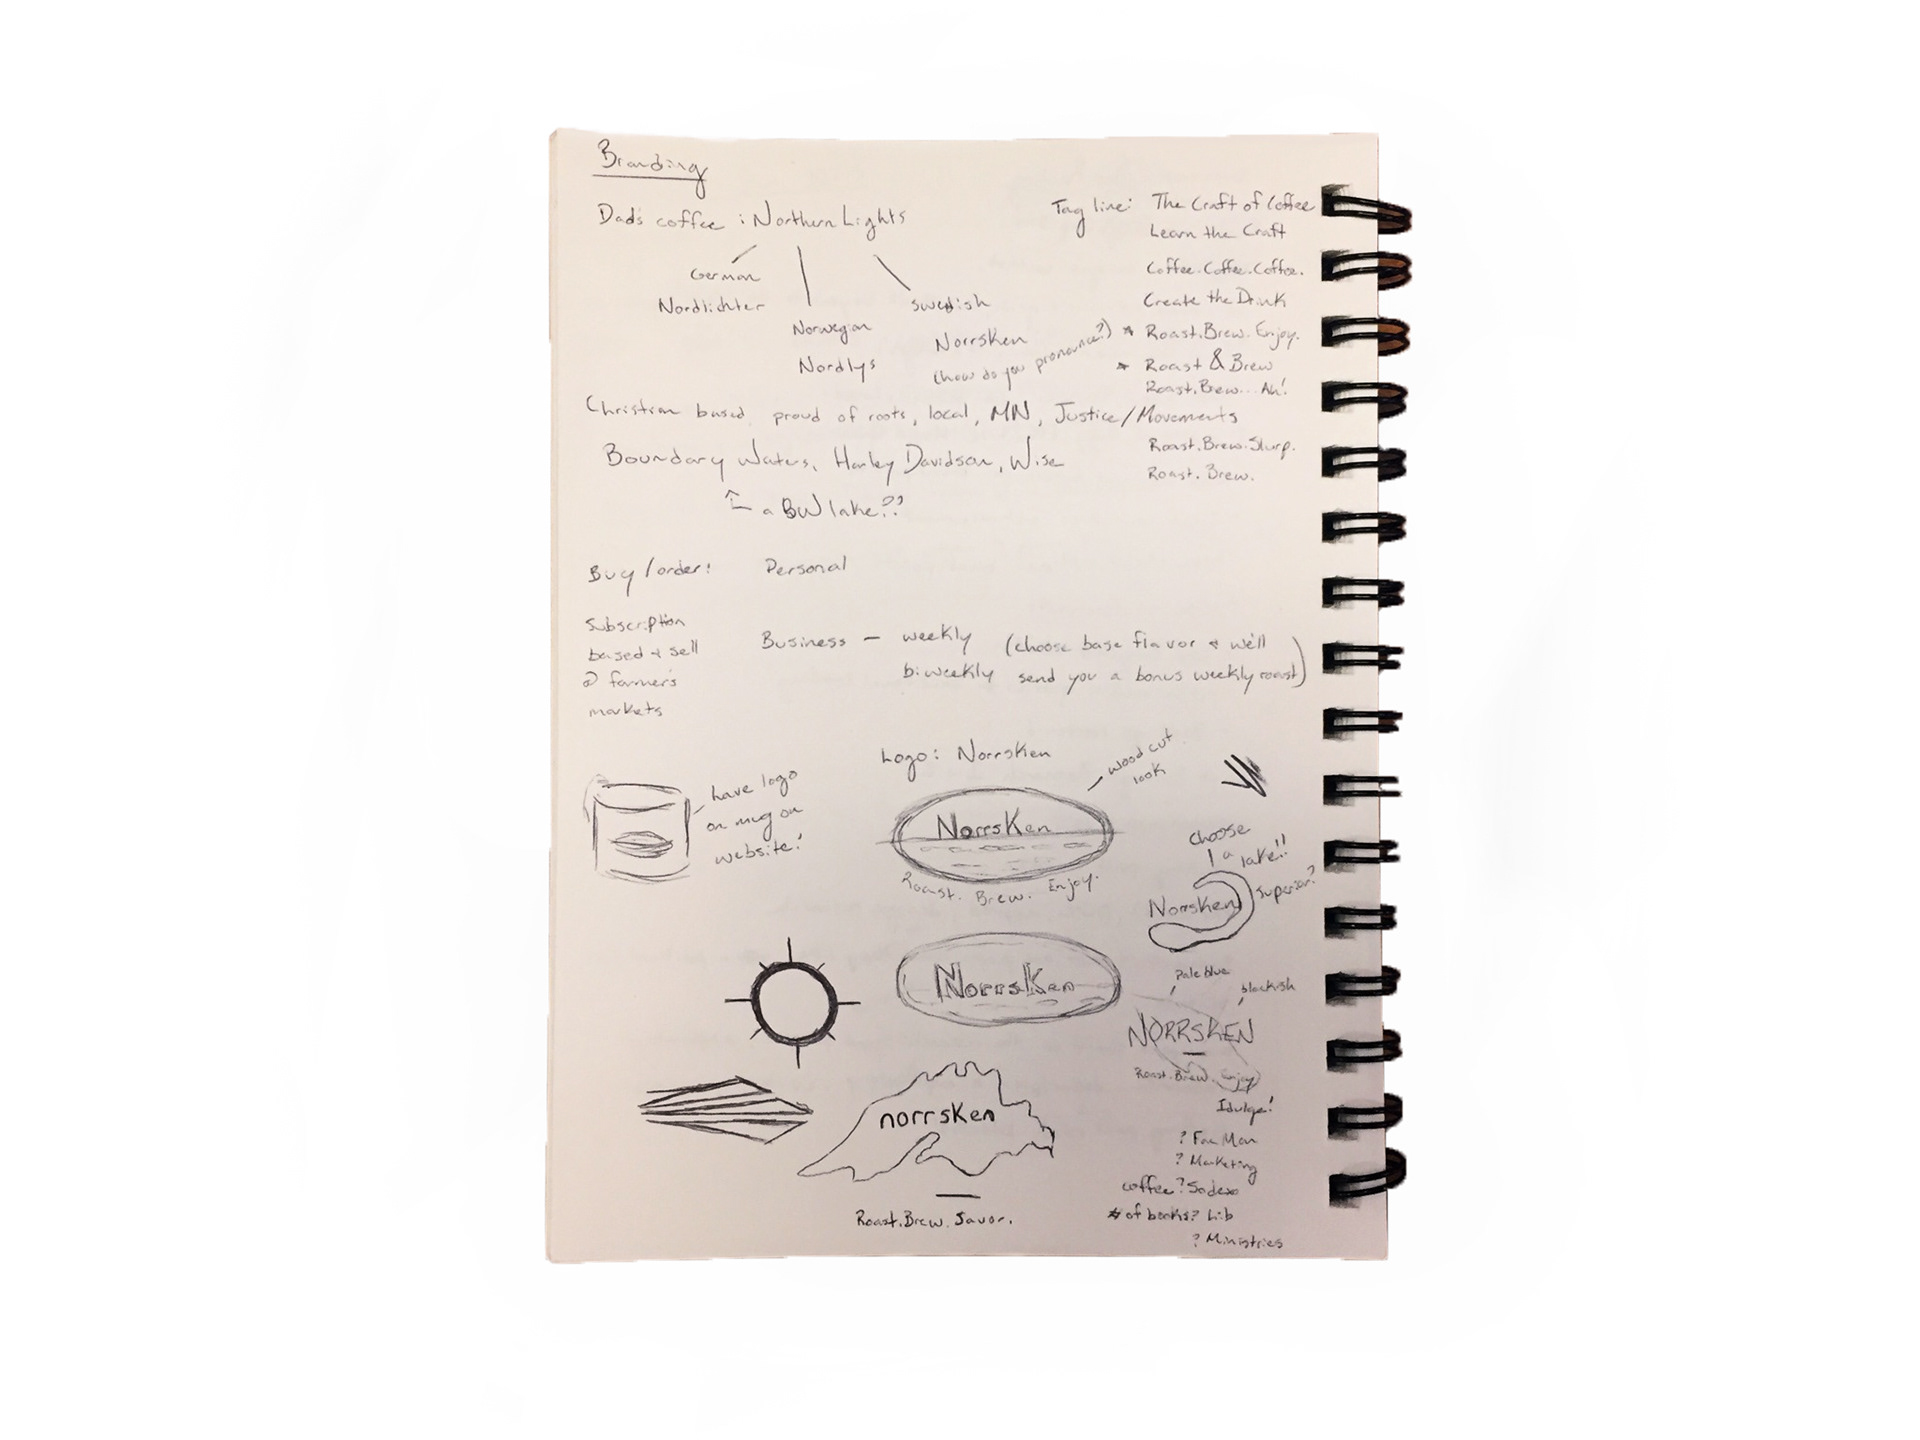 Branding
Dad's coffee : Northern Lights
German
Nordlichter
Norwegian
Nordlys
Swedish
Norrsken
(how do you pronounce?)
Tag line: The Craft of Coffee
Learn the Craft
Coffee. Coffee. Coffee.
Create the Drink
* Roast. Brew. Enjoy.
* Roast & Brew
Roast. Brew... Ah!
Roast. Brew. Slurp.
Roast. Brew.
Christian based, proud of roots, local, MN, Justice/Movements
Boundary Waters, Harley Davidson, Wise
a BW lake??
Buy/order: Personal
Subscription
based & sell
@ farmers
markets
Business - weekly
biweekly
(choose base flavor & we'll
send you a bonus weekly roast)
Logo: Norrsken
wood cut
look
have logo
on mug on
website!
Norrsken
Roast. Brew. Enjoy.
choose
a lake!!
Superior?
Norrsken
Norrsken
pale blue
blackish
NORRSKEN
Roast. Brew. Enjoy
Idulge!
norrsken
Roast. Brew. Savor.
? Marketing
coffee? Sodexo
# of books? Lib
? Ministries